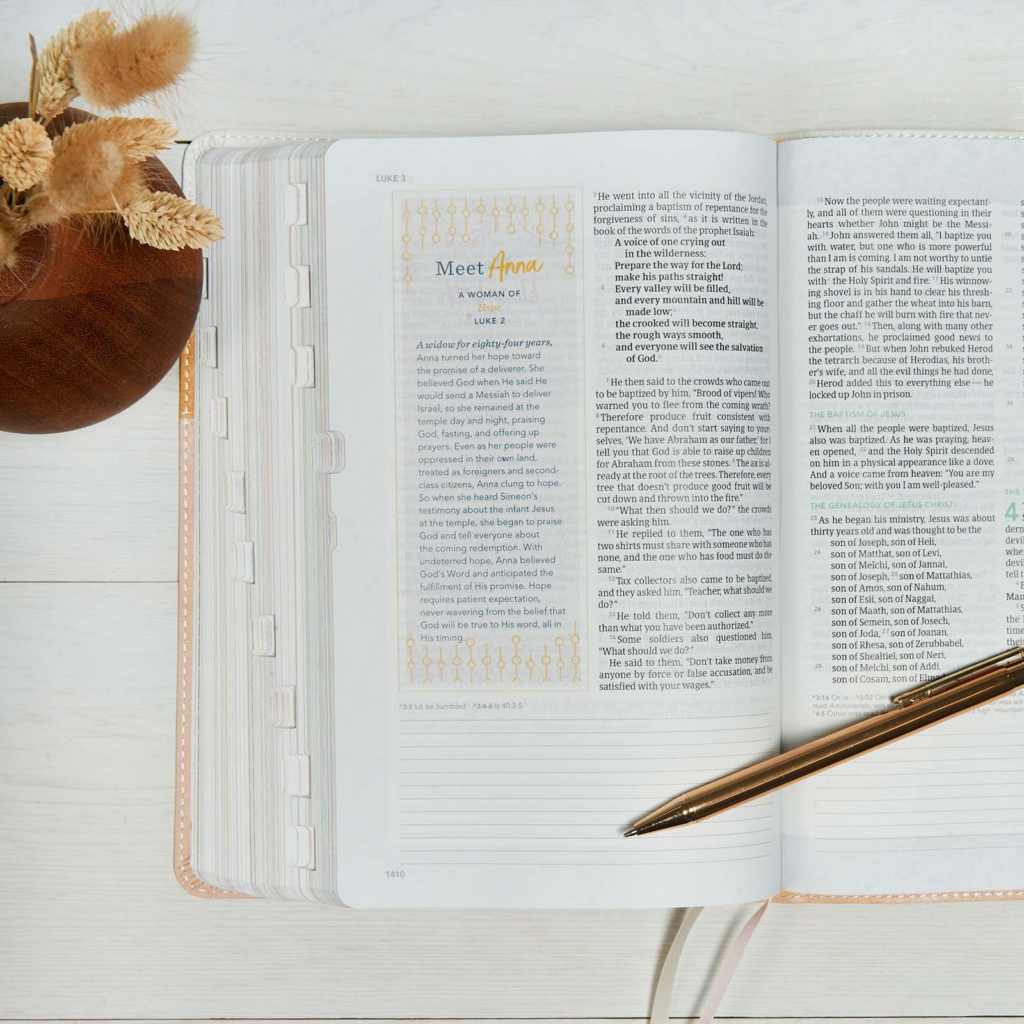 LUKE 3
Meet Anna
A WOMAN OF
Hope
LUKE 2
A widow for eighty-four years,
Anna turned her hope toward
the promise of a deliverer. She
believed God when He said He
would send a Messiah to deliver
Israel, so she remained at the
temple day and night, praising
God, fasting, and offering up
prayers. Even as her people were
oppressed in their own land,
treated as foreigners and second-
class citizens, Anna clung to hope.
So when she heard Simeon's
testimony about the infant Jesus
at the temple, she began to praise
God and tell everyone about
the coming redemption. With
undeterred hope, Anna believed
God's Word and anticipated the
fulfillment of His promise. Hope
requires patient expectation,
never wavering from the belief that
God will be true to His word, all in
His timing.
3 He went into all the vicinity of the Jordan,
proclaiming a baptism of repentance for the
forgiveness of sins, 4 as it is written in the
book of the words of the prophet Isaiah:
A voice of one crying out
in the wilderness:
Prepare the way for the Lord;
make his paths straight!
5 Every valley will be filled,
and every mountain and hill will be
made low;
the crooked will become straight,
the rough ways smooth,
6 and everyone will see the salvation
of God.
7 He then said to the crowds who came out
to be baptized by him, "Brood of vipers! Who
warned you to flee from the coming wrath?
8 Therefore produce fruit consistent with
repentance. And don't start saying to your-
selves, 'We have Abraham as our father,' for I
tell you that God is able to raise up children
for Abraham from these stones. 9 The ax is al-
ready at the root of the trees. Therefore, every
tree that doesn't produce good fruit will be
cut down and thrown into the fire."
10 "What then should we do?" the crowds
were asking him.
11 He replied to them, "The one who has
two shirts must share with someone who has
none, and the one who has food must do the
same."
12 Tax collectors also came to be baptized,
and they asked him, "Teacher, what should we
do?"
13 He told them, "Don't collect any more
than what you have been authorized."
14 Some soldiers also questioned him,
"What should we do?"
He said to them, "Don't take money from
anyone by force or false accusation, and be
satisfied with your wages."
3:5 Lit be humbled 3:4-6 Is 40:3-5
1410
15 Now the people were waiting expectant-
ly, and all of them were questioning in their
hearts whether John might be the Messi-
ah. 16 John answered them all, "I baptize you
with water, but one who is more powerful
than I am is coming. I am not worthy to untie
the strap of his sandals. He will baptize you
with the Holy Spirit and fire. 17 His winnow-
ing shovel is in his hand to clear his thresh-
ing floor and gather the wheat into his barn,
but the chaff he will burn with fire that nev-
er goes out." 18 Then, along with many other
exhortations, he proclaimed good news to
the people. 19 But when John rebuked Herod
the tetrarch because of Herodias, his broth-
er's wife, and all the evil things he had done,
20 Herod added this to everything else — he
locked up John in prison.
THE BAPTISM OF JESUS
21 When all the people were baptized, Jesus
also was baptized. As he was praying, heav-
en opened, 22 and the Holy Spirit descended
on him in a physical appearance like a dove.
And a voice came from heaven: "You are my
beloved Son; with you I am well-pleased."
THE GENEALOGY OF JESUS CHRIST
23 As he began his ministry, Jesus was about
thirty years old and was thought to be the
son of Joseph, son of Heli,
24 son of Matthat, son of Levi,
son of Melchi, son of Jannai,
son of Joseph, 25 son of Mattathias,
son of Amos, son of Nahum,
son of Esli, son of Naggai,
26 son of Maath, son of Mattathias,
son of Semein, son of Josech,
son of Joda, 27 son of Joanan,
son of Rhesa, son of Zerubbabel,
son of Shealtiel, son of Neri,
28 son of Melchi, son of Addi,
son of Cosam, son of
3:16 Or in 3:32
4:5 Other mss read
4